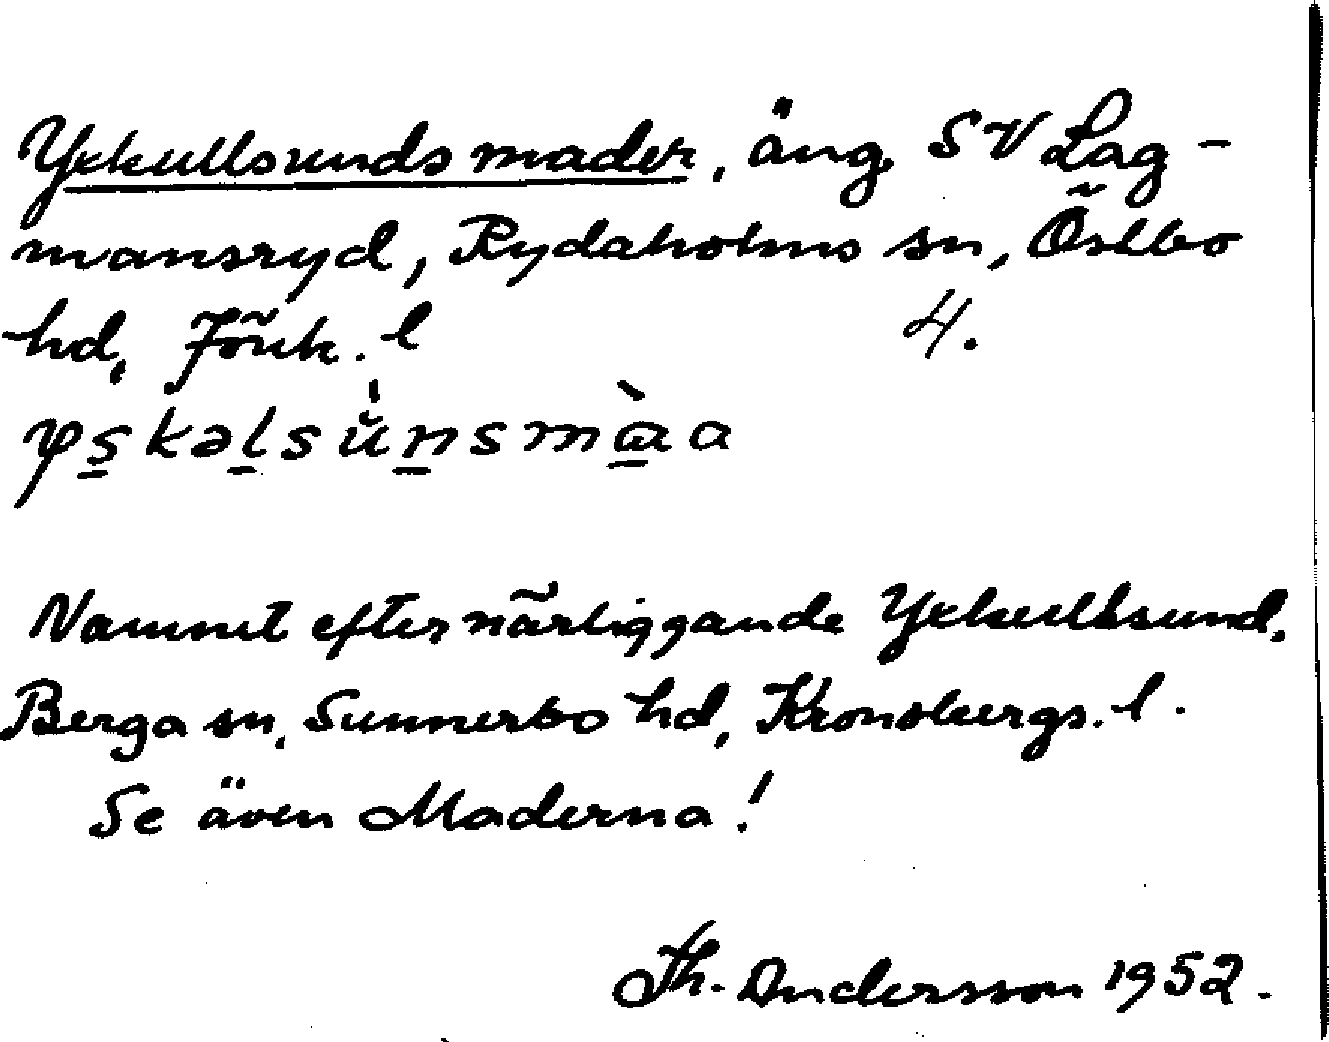 Yxkullsunds mader, äng, SV Lag-
mansryd, Rydaholms sn, Östbo
hd, Jönk. l 4.
Namnet efter närliggande Yxkullsund,
Berga sn, Sunnerbo hd, Kronobergs. l.
Se även Maderna!
Th. Andersson 1952.